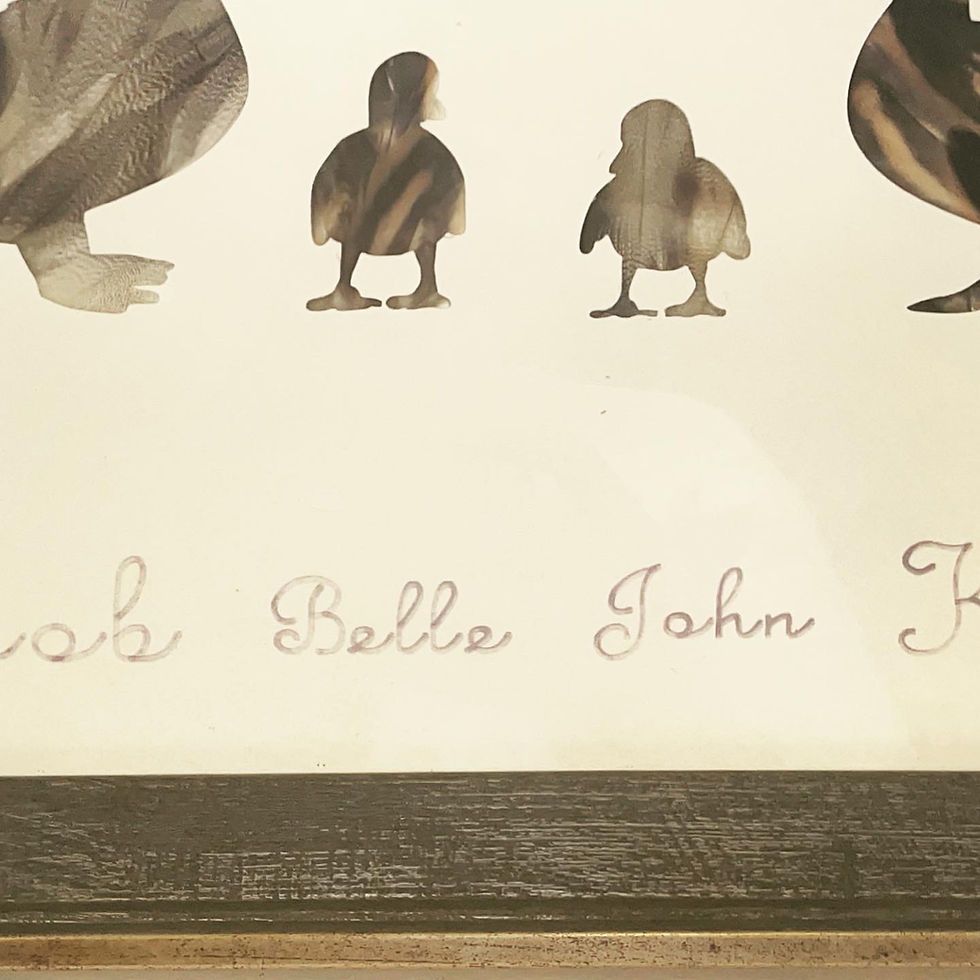 ob Belle John K